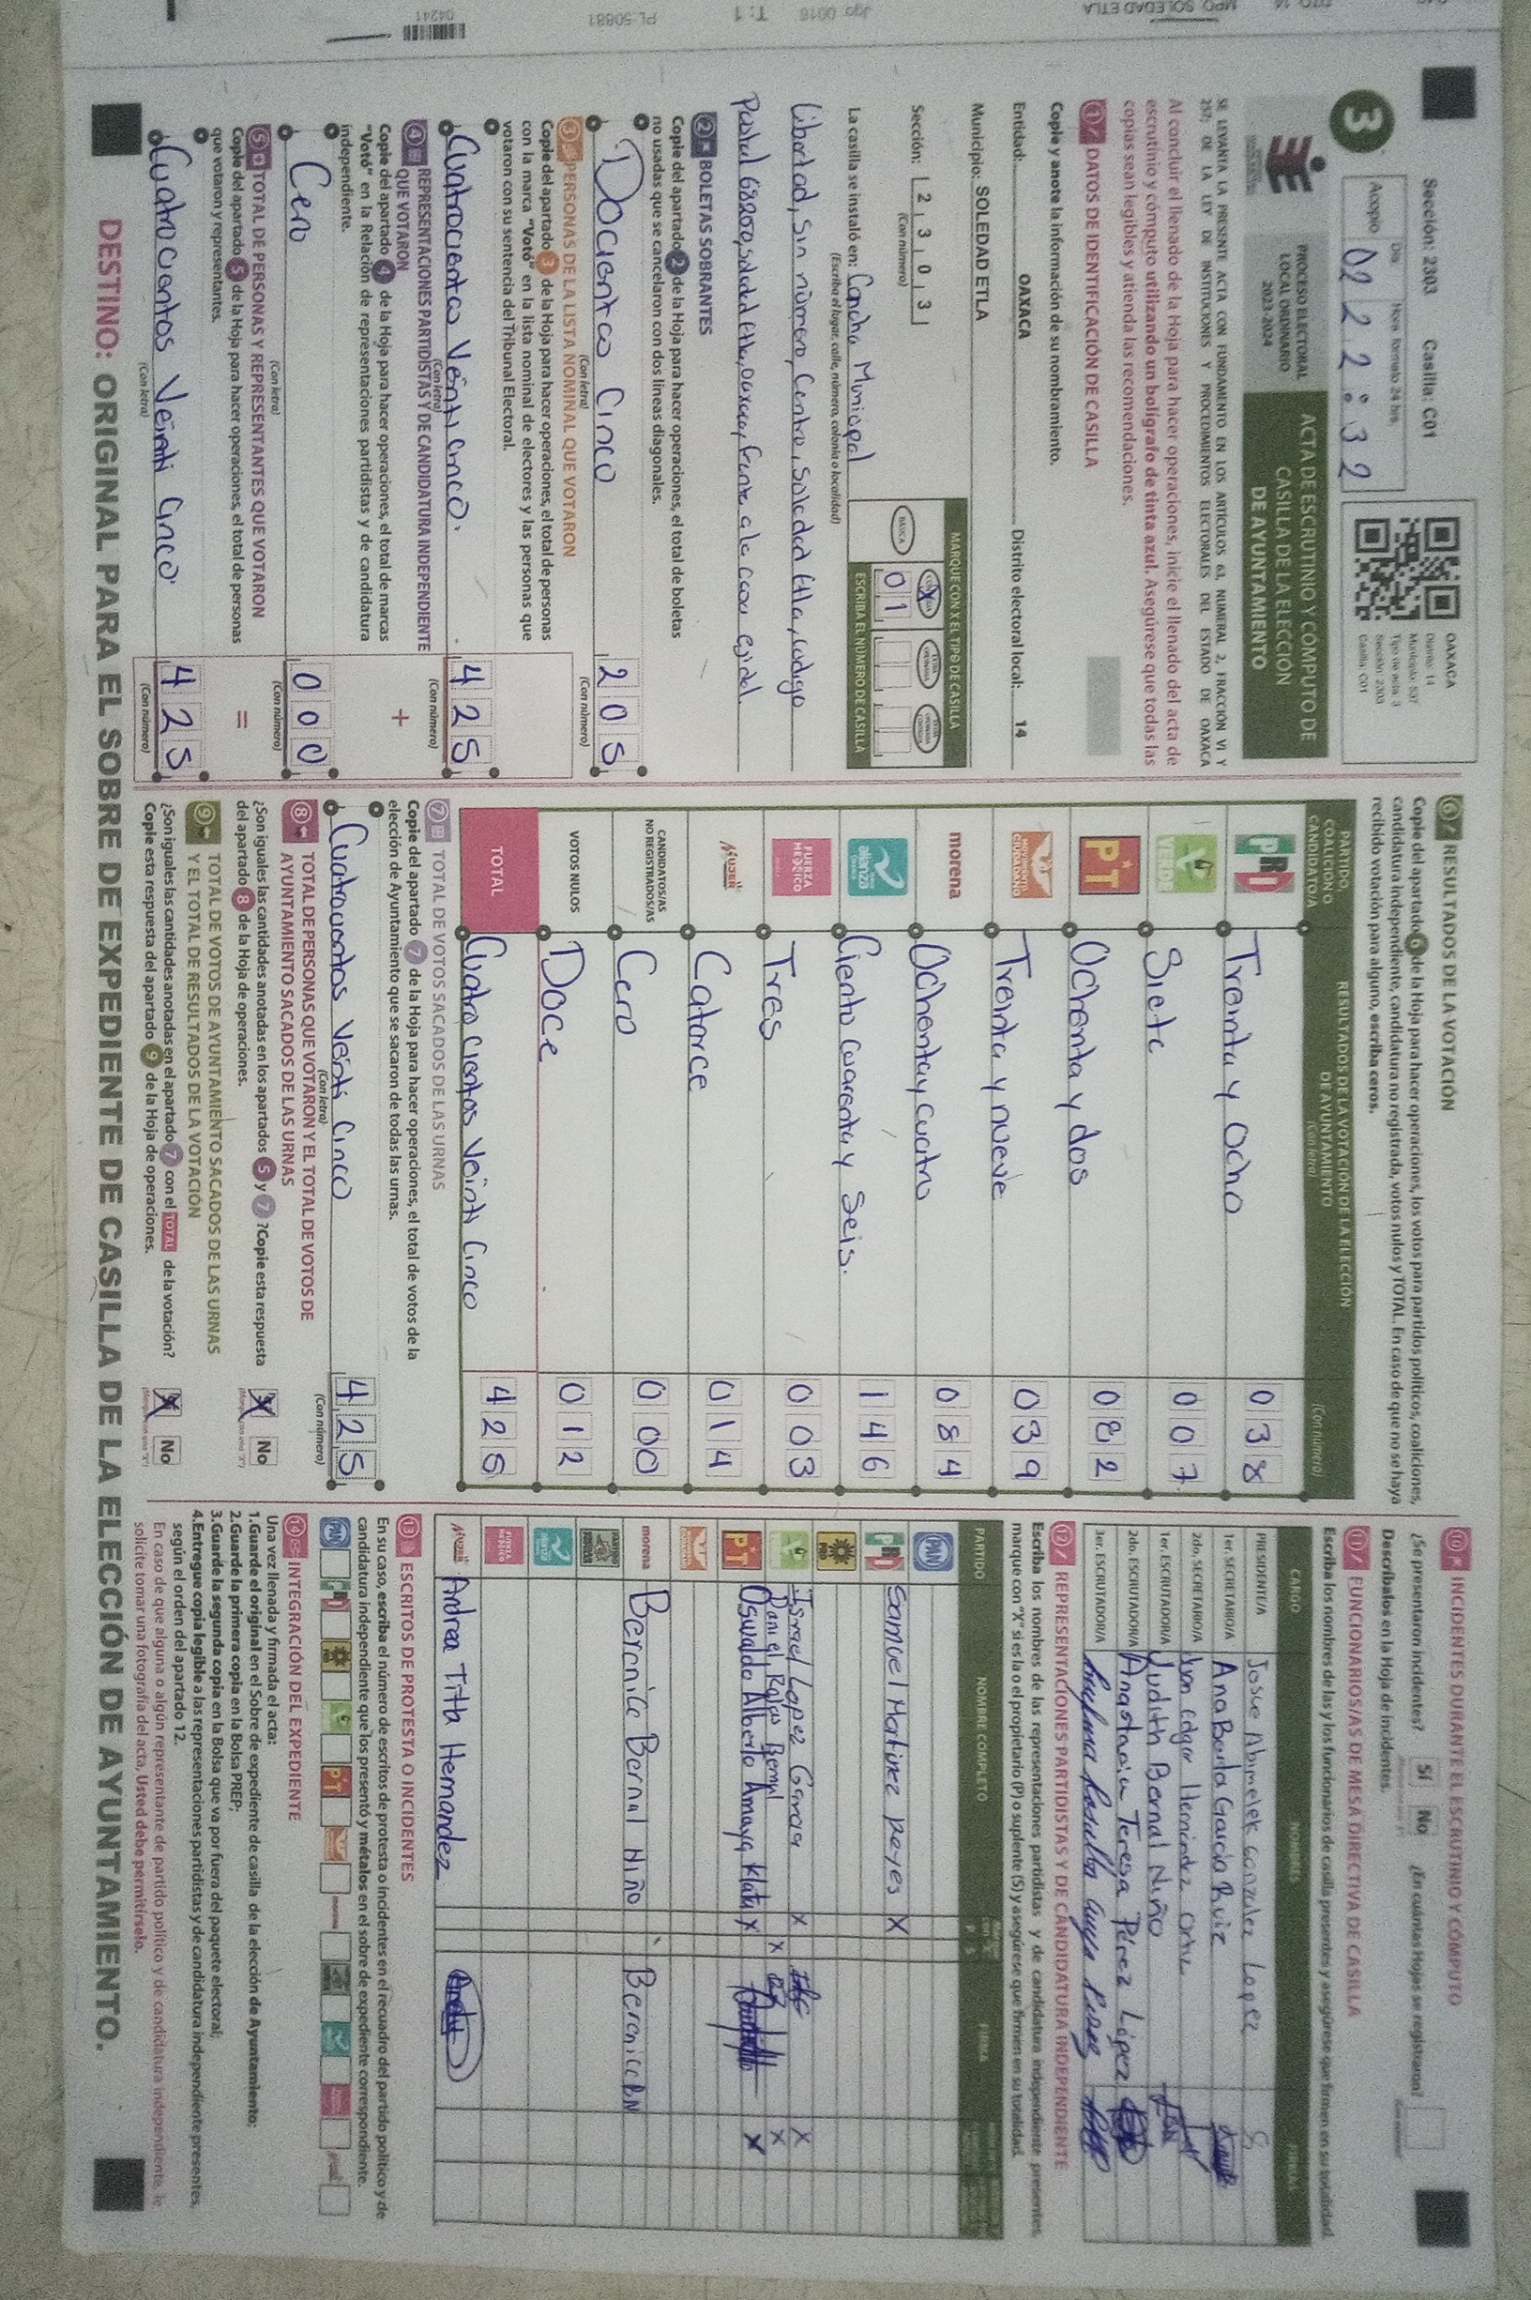 Sección: 2303 Casilla: C01
OAXACA
Distrito: 14
Municipio: 537
Tipo de acta: 3
Sección: 2303
Casilla: C01
3
Día Hora formato 24 hrs.
Acopio 02 22:32
PROCESO ELECTORAL
LOCAL ORDINARIO
2023-2024
ACTA DE ESCRUTINIO Y CÓMPUTO DE
CASILLA DE LA ELECCIÓN
DE AYUNTAMIENTO
SE LEVANTA LA PRESENTE ACTA CON FUNDAMENTO EN LOS ARTÍCULOS 63, NUMERAL 2, FRACCIÓN VI Y
257; DE LA LEY DE INSTITUCIONES Y PROCEDIMIENTOS ELECTORALES DEL ESTADO DE OAXACA
Al concluir el llenado de la Hoja para hacer operaciones, inicie el llenado del acta de
escrutinio y cómputo utilizando un bolígrafo de tinta azul. Asegúrese que todas las
copias sean legibles y atienda las recomendaciones.
1 DATOS DE IDENTIFICACIÓN DE CASILLA
Copie y anote la información de su nombramiento.
Entidad: OAXACA Distrito electoral local: 14
Municipio: SOLEDAD ETLA
MARQUE CON X EL TIPO DE CASILLA
Sección: 2 3 0 3
(Con número)
BÁSICA
X
0 1
ESCRIBA EL NÚMERO DE CASILLA
La casilla se instaló en: Cancha Municipal
(Escriba el lugar, calle, número, colonia o localidad)
Libertad, sin número, Centro, Soledad Etla, codigo
Postal 68200, soledad Etla, oaxaca, frente a la casa ejidal
2 BOLETAS SOBRANTES
Copie del apartado 2 de la Hoja para hacer operaciones, el total de boletas
no usadas que se cancelaron con dos líneas diagonales.
Docientos Cinco 205
(Con letra) (Con número)
3 PERSONAS DE LA LISTA NOMINAL QUE VOTARON
Copie del apartado 3 de la Hoja para hacer operaciones, el total de personas
con la marca "Votó" en la lista nominal de electores y las personas que
votaron con su sentencia del Tribunal Electoral.
Cuatrocientos Veinti cinco. 425
(Con letra) (Con número)
4 REPRESENTACIONES PARTIDISTAS Y DE CANDIDATURA INDEPENDIENTE
QUE VOTARON
+
Copie del apartado 4 de la Hoja para hacer operaciones, el total de marcas
"Votó" en la Relación de representaciones partidistas y de candidatura
independiente.
Cero 000
(Con letra) (Con número)
5 TOTAL DE PERSONAS Y REPRESENTANTES QUE VOTARON
=
Copie del apartado 5 de la Hoja para hacer operaciones, el total de personas
que votaron y representantes.
Cuatrocientos Veinti Cinco 425
(Con letra) (Con número)
6 RESULTADOS DE LA VOTACIÓN
Copie del apartado 6 de la Hoja para hacer operaciones, los votos para partidos políticos, coaliciones,
candidatura independiente, candidatura no registrada, votos nulos y TOTAL. En caso de que no se haya
recibido votación para alguno, escriba ceros.
PARTIDO,
COALICIÓN O
CANDIDATO/A
RESULTADOS DE LA VOTACIÓN DE LA ELECCIÓN
DE AYUNTAMIENTO
(Con letra) (Con número)
PRI Treinta y Ocho 038
VERDE Siete 007
PT Ochenta y dos 082
MOVIMIENTO CIUDADANO Treinta y nueve 039
morena Ochenta y cuatro 084
alianza Ciento cuarenta y Seis. 146
FUERZA MÉXICO Tres 003
MUJER Catorce 014
CANDIDATOS/AS
NO REGISTRADOS/AS Cero 000
VOTOS NULOS Doce 012
TOTAL Cuatro cientos Veinti Cinco 425
7 TOTAL DE VOTOS SACADOS DE LAS URNAS
Copie del apartado 7 de la Hoja para hacer operaciones, el total de votos de la
elección de Ayuntamiento que se sacaron de todas las urnas.
Cuatrocientos Veinti Cinco 425
(Con letra) (Con número)
8 TOTAL DE PERSONAS QUE VOTARON Y EL TOTAL DE VOTOS DE
AYUNTAMIENTO SACADOS DE LAS URNAS
¿Son iguales las cantidades anotadas en los apartados 5 y 7 ?Copie esta respuesta
del apartado 8 de la Hoja de operaciones. X No
9 TOTAL DE VOTOS DE AYUNTAMIENTO SACADOS DE LAS URNAS
Y EL TOTAL DE RESULTADOS DE LA VOTACIÓN
¿Son iguales las cantidades anotadas en el apartado 7 con el TOTAL de la votación?
Copie esta respuesta del apartado 9 de la Hoja de operaciones. X No
10 INCIDENTES DURANTE EL ESCRUTINIO Y CÓMPUTO
¿Se presentaron incidentes? Sí No ¿En cuántas Hojas se registraron?
Descríbalos en la Hoja de incidentes.
11 FUNCIONARIOS/AS DE MESA DIRECTIVA DE CASILLA
Escriba los nombres de las y los funcionarios de casilla presentes y asegúrese que firmen en su totalidad.
CARGO NOMBRES FIRMAS
PRESIDENTE/A Josue Abimelek Gonzalez Lopez
1er. SECRETARIO/A Ana Berta Garcia Ruiz
2do. SECRETARIO/A Ivan Edgar Hernandez Ortiz
1er. ESCRUTADOR/A Judith Bernal Niño
2do. ESCRUTADOR/A Anastacia Teresa Pérez López
3er. ESCRUTADOR/A
12 REPRESENTACIONES PARTIDISTAS Y DE CANDIDATURA INDEPENDIENTE
Escriba los nombres de las representaciones partidistas y de candidatura independiente presentes,
marque con "X" si es la o el propietario (P) o suplente (S) y asegúrese que firmen en su totalidad.
PARTIDO NOMBRE COMPLETO P S FIRMA
PAN
PRI Samuel Matinez Reyes X
PRD
VERDE Israel Lopez Garcia X X
Daniel Rojas Bernal X X
PT Oswaldo Alberto Amaya X X
morena Berenice Bernal Niño Berenice BN
MUJER Andrea Titla Hernandez
13 ESCRITOS DE PROTESTA O INCIDENTES
En su caso, escriba el número de escritos de protesta o incidentes en el recuadro del partido político y de
candidatura independiente que los presentó y métalos en el sobre de expediente correspondiente.
14 INTEGRACIÓN DEL EXPEDIENTE
Una vez llenada y firmada el acta:
1.Guarde el original en el Sobre de expediente de casilla de la elección de Ayuntamiento;
2.Guarde la primera copia en la Bolsa PREP;
3.Guarde la segunda copia en la Bolsa que va por fuera del paquete electoral;
4.Entregue copia legible a las representaciones partidistas y de candidatura independiente presentes,
según el orden del apartado 12.
En caso de que alguna o algún representante de partido político y de candidatura independiente, le
solicite tomar una fotografía del acta, Usted debe permitírselo.
DESTINO: ORIGINAL PARA EL SOBRE DE EXPEDIENTE DE CASILLA DE LA ELECCIÓN DE AYUNTAMIENTO.
MPO SOLEDAD ETLA
Jgo 0016 T: 1 PL-50881
04241